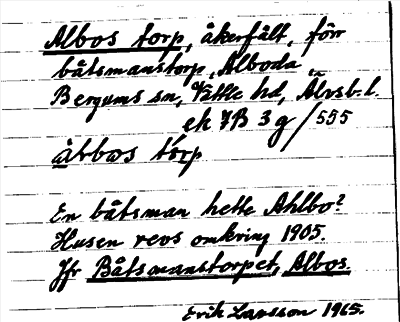 Albos torp, åkerfält, förr
båtsmanstorp, Alboda
Bergums sn, Vättle hd, Älvsb. l.
ek 7B 3g/555
torp
En båtsman hette Ahlbo?
Husen revs omkring 1905.
Jfr Båtsmanstorpet, Albos.
Erik Larsson 1965.